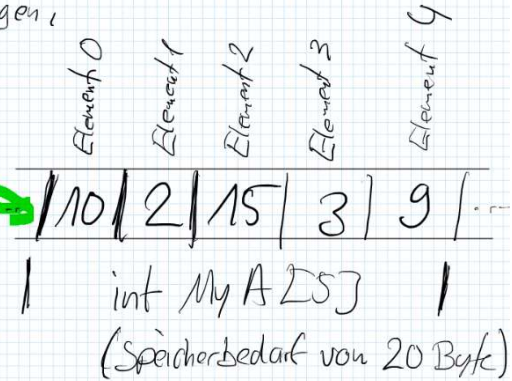 gen,
Element 0 Element 1 Element 2 Element 3 Element 4
10 2 15 3 9 ...
int MyA[5]
(Speicherbedarf von 20 Byte)